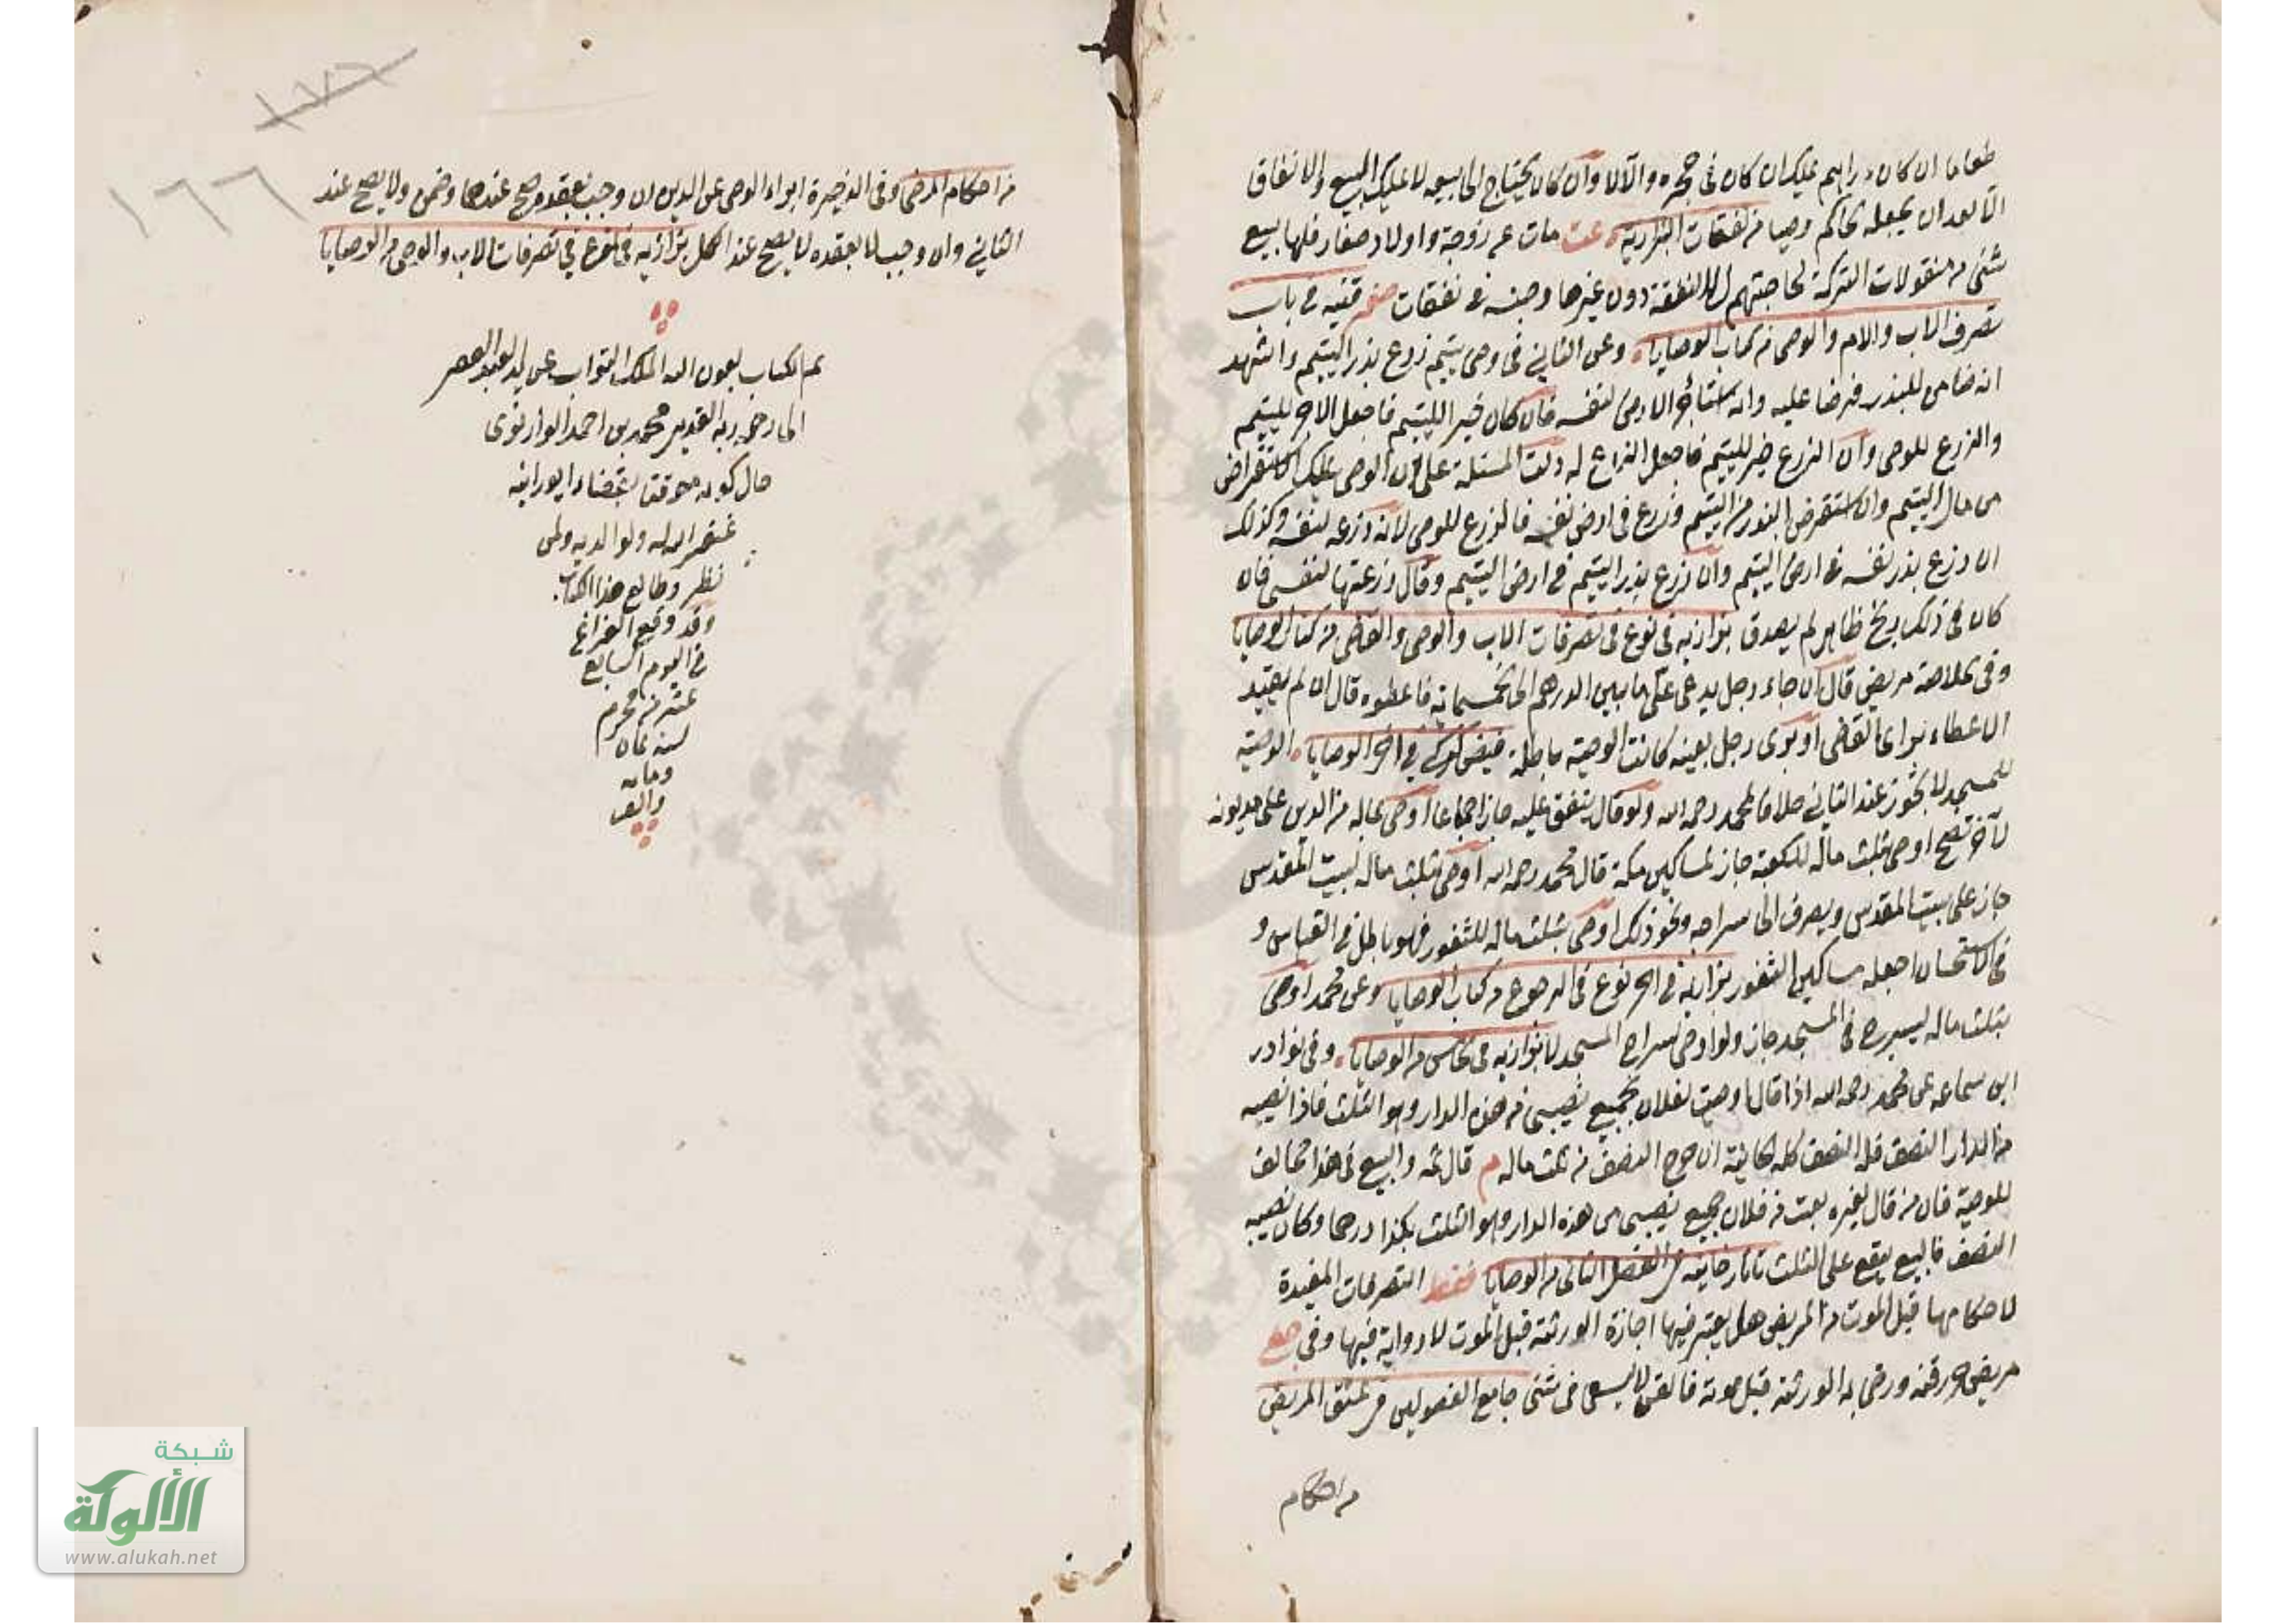 طعاما ان كان دراهم يملك ان كان في حجره والا لا وان كان يحتاج الى بيعه لا يملك البيع والانفاق
الا بعد ان يجعله الحاكم وصيا من نفقات البزازية عت مات عن زوجة واولاد صغار فلها بيع
شئ من منقولات التركة لحاجتهم للنفقة دون غيرها وجنسه في نفقات قنيه في باب
تصرف الاب والام والوصى من كتاب الوصايا وعن الثاني في وصى يتيم زرع بذر اليتيم واشهد
انه ضامن للبذر قرضا عليه وانه استأجر الارض لنفسه فان كان خير لليتيم فاجعل الاجر لليتيم
والزرع للوصى وان الزرع خير لليتيم فاجعل الزرع له دلت المسئلة على ان الوصى يملك الاستقراض
من مال اليتيم وان استقرض البذر من اليتيم وزرع في ارض نفسه فالزرع للوصى لانه زرعه لنفسه وكذلك
ان زرع بذر نفسه في ارض اليتيم وان زرع بذر اليتيم في ارض اليتيم وقال زرعتها لنفسى فان
كان في ذلك ربح ظاهر لم يصدق بزازيه في نوع في تصرفات الاب والوصى والقاضى من كتاب الوصايا
وفى الخلاصة مريض قال ان جاء رجل يدعى على ما بين الدرهم الى خمسمائة فاعطوه قال ان لم يقيد
الاعطاء براى القاضى او برأى رجل بعينه كانت الوصية باطلة فيض كركي في اخر الوصايا الوصية
للمسجد لا يجوز عند الثاني خلافا لمحمد رحمه الله ولو قال ينفق عليه جاز اجماعا اوصى بماله من الدين على مديونه
لآخر تصح اوصى بثلث ماله للكعبة جاز لمساكين مكة قال محمد رحمه الله اوصى بثلث ماله لبيت المقدس
جاز على بيت المقدس ويصرف الى سراجه ونحو ذلك اوصى بثلث ماله للثغور فهو باطل في القياس و
في الاستحسان اجعله مساكين الثغور بزازية في اخر نوع في الرجوع من كتاب الوصايا وعن محمد اوصى
بثلث ماله ليسرج في المسجد جاز ولو اوصى لسراج المسجد لا بزازيه في الخامس من الوصايا وفى نوادر
ابن سماعه عن محمد رحمه الله اذا قال اوصيت لفلان بجميع نصيبى من هذه الدار وهو الثلث فاذا نصيبه
من الدار النصف فله النصف كله ان خرج النصف من ثلث ماله م قال ثمه والبيع في هذا مخالف
للوصية فان من قال لغيره بعت من فلان جميع نصيبى من هذه الدار وهو الثلث بكذا درهما وكان نصيبه
النصف فالبيع يقع على الثلث تاتارخانيه من الفصل الثاني من الوصايا فقط التصرفات المفيدة
لاحكامها قبل الموت من المريض هل يعتبر فيها اجازة الورثة قبل الموت لا رواية فيها وفى
مريض حرر قنه ورضى به الورثة قبل موته فالقن لا يسعى في شئ جامع الفصولين في عتق المريض
من احكام
١٧٦
١٦٦
من احكام المرضى وفى الذخيرة ابراء الوصى عن الدين ان وجب بعقده صح عندهما وضمن ولا يصح عند
الثاني وان وجب لا بعقده لا يصح عند الكل بزازيه في نوع في تصرفات الاب والوصى من الوصايا
تم الكتاب بعون الله الملك التواب عن يد العبد
الى ربه القدير محمد بن احمد
حال كونه بقضاء
غفر الله له ولوالديه ولمن
نظر وطالع هذا الكتاب
وقد وقع الفراغ
في اليوم السابع
عشر من محرم
لسنه ثمان
ومايه
والف
شبكة
الألوكة
www.alukah.net